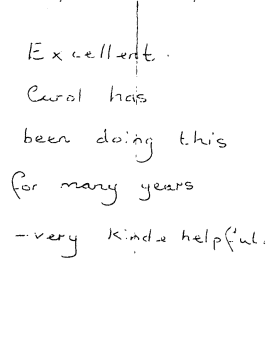 Excellent.
Carol has
been doing this
for many years
- very kind & helpful.